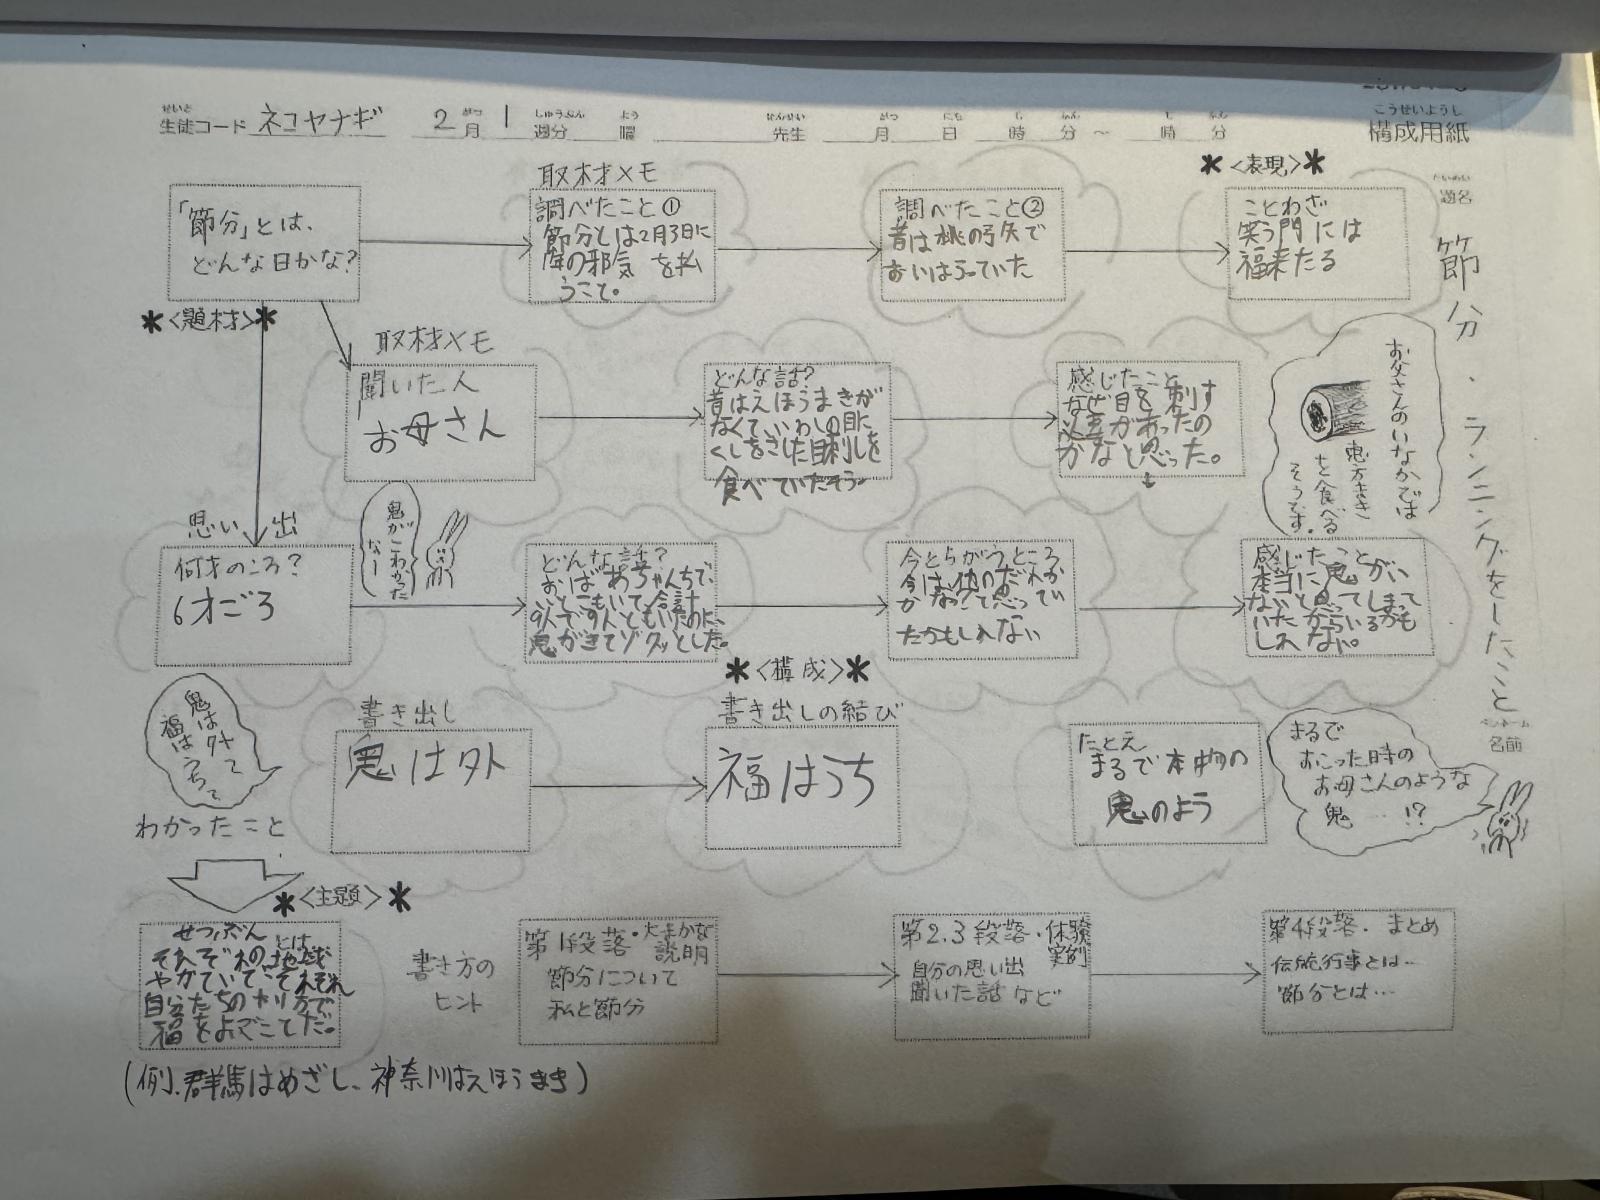 せいと がつ しゅうぶん よう せんせい がつ にち じ ふん じ ふん こうせいようし
生徒コード ネコヤナギ 2月 1 週分 曜 先生 月 日 時 分 ~ 時 分 構成用紙
だいめい
題名
節分・ランニングをしたこと
ペンネーム
名前
「節分」とは、
どんな日かな?
*<題材>*
取材メモ
調べたこと①
節分とは2月3日に
の邪気を払
うこと。
調べたこと②
昔は桃の弓矢で
おいはらっていた
*<表現>*
ことわざ
笑う門には
福来たる
取材メモ
聞いた人
お母さん
どんな話?
昔はえほうまきが
なくていわしの目に
くしをさした目刺しを
食べていたそう
感じたこと
なぜ目を刺す
必要があったの
かなと思った。
お父さんのいなかでは
恵方まき
を食べる
そうです。
思い出
何才のころ?
6才ごろ
鬼がこわかった
なー
どんな話?
おばあちゃんちで、
いとこもいて合計
9人で9人ともいたのに、
鬼がきてゾクッとした。
今とちがうところ
今は他のだれか
かなって思って
たかもしれない
感じたこと
本当に鬼がい
ないと思ってしまって
いたからいるかも
しれない。
鬼は外って
福はうちって
書き出し
鬼は外
*<構成>*
書き出しの結び
福はうち
たとえ
まるで本物の
鬼のよう
まるで
おこった時の
お母さんのような
鬼…!?
わかったこと
*<主題>*
せつぶんとは
それぞれの地域
やかていでそれぞれ
自分たちのやり方で
福をよぶことだ。
(例.群馬はめざし、神奈川はえほうまき)
書き方の
ヒント
第1段落・大まかな
説明
節分について
私と節分
第2.3段落・体験
実例
自分の思い出
聞いた話など
第4段落.まとめ
伝統行事とは…
節分とは…